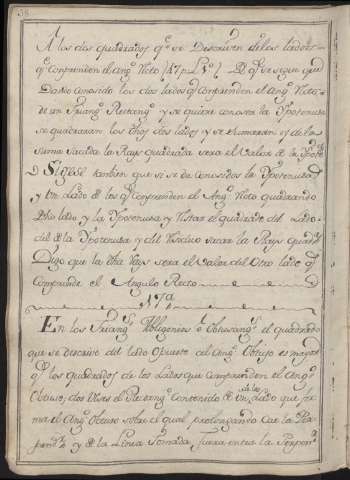 A los dos quadrados q.e se Descriven de los lados
q.e conprenden el Ang.o Recto (47 p. L. 1.o) De q.e se sigue que
Dando conosido los dos lados q.e conprenden el Ang.o Recto
de un Triang.o Rectang.o y se quiere conoser la Ypotenusa
se quadraran los dhos dos lados y se sumaran y de la
suma sacada la Rays quadrada sera el Valor de la Ypot.sa
Siguese tambien que si se da conosidos la Ypotenusa
y Un lado de los q.e conprenden el Ang.o Recto quadrando
dho lado y la Ypotenusa y Restar el quadrado del lado
del de la Ypotenusa y del Residuo sacar la Rays quad.da
Digo que la dha Rays sera el Valor del Otro lado q.e
Comprende el Angulo Recto
17.a
En los Triang.s Obligonios o Obtusang.s el quadrado
que se descrive del lado Opuesto al Ang.o Obtuso es mayor
q.e los quadrados de los Lados que comprenden el Ang.o
Obtuso; dos Veses el Rectang.o contenido de Un lado que for
ma el Ang.o Obtuso sobre el qual prolongando cae la Per
pend.r y de la Linea Tomada fuera entre la Perpen.r